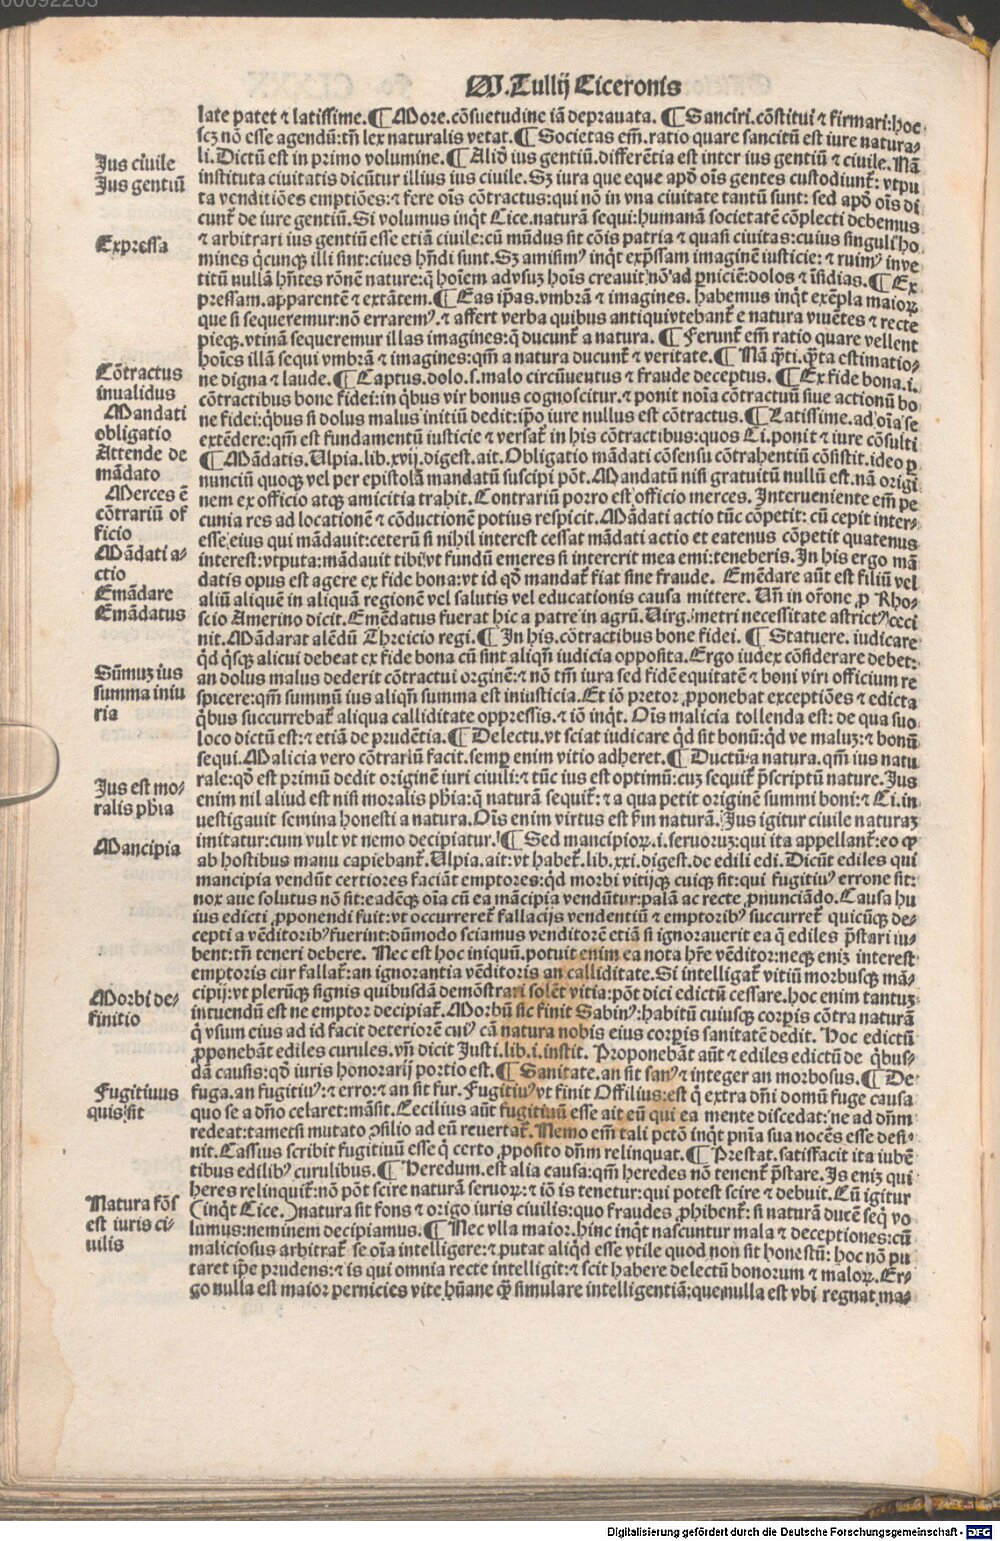 M.Tullij Ciceronis
late patet ⁊ latissime.¶ More.cõsuetudine iã deprauata. ¶ Sanciri.cõstitui ⁊ firmari:hoc
scꝫ nõ esse agendũ:tñ lex naturalis vetat.¶ Societas em̃.ratio quare sancitũ est iure natura-
li.Dictũ est in primo volumine.¶ Aliđ ius gentiũ.differẽtia est inter ius gentiũ ⁊ ciuile.Nã
Jus ciuile
Jus gentiũ
instituta ciuitatis dicũtur illius ius ciuile.Sꝫ iura que eque apđ oĩs gentes custodiunt᷑: vtpu
ta venditiões emptiões:⁊ fere oĩs cõtractus:qui nõ in vna ciuitate tantũ sunt: sed apđ oĩs di
cunt᷑ de iure gentiũ.Si volumus inq̃t Cice.naturã sequi:humanã societatẽ cõplecti debemus
⁊ arbitrari ius gentiũ esse etiã ciuile:cũ mũdus sit cõis patria ⁊ quasi ciuitas:cuius singuli ho
Expressa
mines q̃cunqꝫ illi sint:ciues hñdi sunt.Sꝫ amisimꝰ inq̃t exp̃ssam imaginẽ iusticie:⁊ ruimꝰ inue
titũ nullã hñtes rõnẽ nature:q̃ hoĩem adusuꝫ hoĩs creauit nõ ad ꝑniciẽ:dolos ⁊ ĩsidias.¶ Ex
pressam.apparentẽ ⁊ extãtem.¶ Eas ip̃as.vmbrã ⁊ imagines. habemus inq̃t exẽpla maioꝝ
que si sequeremur:nõ erraremꝰ.⁊ affert verba quibus antiquitebant᷑ e natura viuẽtes ⁊ recte
pieqꝫ.vtinã sequeremur illas imagines:q̃ ducunt᷑ a natura. ¶ Ferunt᷑ em̃ ratio quare vellent
hoĩes illã sequi vmbrã ⁊ imagines:qm̃ a natura ducunt᷑ ⁊ veritate.¶ Nã q̃ti.q̃ta estimatio-
ne digna ⁊ laude.¶ Captus.dolo.s.malo circũuentus ⁊ fraude deceptus. ¶ Ex fide bona.i.
Cõtractus
inualidus
cõtractibus bone fidei:in q̃bus vir bonus cognoscitur.⁊ ponit noĩa cõtractuũ siue actionũ bo
ne fidei:q̃bus si dolus malus initiũ dedit:ip̃o iure nullus est cõtractus.¶ Latissime.ad oĩa se
Mandati
obligatio
extẽdere:qm̃ est fundamentũ iusticie ⁊ versat᷑ in his cõtractibus:quos Ci.ponit ⁊ iure cõsulti
Attende de
mãdato
¶ Mãdatis.Ulpia.lib.xvij.digest.ait.Obligatio mãdati cõsensu cõtrahentiũ cõsistit.ideo ꝑ
nunciũ quoqꝫ vel per epistolã mandatũ suscipi põt.Mandatũ nisi gratuitũ nullũ est.nã origi
Merces ẽ
cõtrariũ of
ficio
nem ex officio atqꝫ amicitia trahit.Contrariũ porro est officio merces. Interueniente em̃ pe
cunia res ad locationẽ ⁊ cõductionẽ potius respicit.Mãdati actio tũc cõpetit: cũ cepit inter-
esse eius qui mãdauit:ceterũ si nihil interest cessat mãdati actio et eatenus cõpetit quatenus
Mãdati a-
ctio
interest:vtputa:mãdauit tibi vt fundũ emeres si intererit mea emi:teneberis.In his ergo mã
datis opus est agere ex fide bona:vt id qđ mandat᷑ fiat sine fraude. Emẽdare aũt est filiũ vel
Emãdare
Emãdatus
aliũ aliquẽ in aliquã regionẽ vel salutis vel educationis causa mittere. Uñ in or̃one ꝓ Rho-
scio Amerino dicit.Emẽdatus fuerat hic a patre in agrũ.Uirg.metri necessitate astrictꝰ ceci
nit.Mãdarat alẽdũ Threicio regi.¶ In his.cõtractibus bone fidei. ¶ Statuere. iudicare
q̃d q̃sqꝫ alicui debeat ex fide bona cũ sint aliqñ iudicia opposita.Ergo iudex cõsiderare debet:
Sũmuꝫ ius
summa iniu
ria
an dolus malus dederit cõtractui originẽ:⁊ nõ tm̃ iura sed fidẽ equitatẽ ⁊ boni viri officium re
spicere:qm̃ summũ ius aliqñ summa est iniusticia.Et iõ pretor ꝓponebat exceptiões ⁊ edicta
q̃bus succurrebat᷑ aliqua calliditate oppressis.⁊ iõ inq̃t. Oĩs malicia tollenda est: de qua suo
loco dictũ est:⁊ etiã de prudẽtia.¶ Delectu.vt sciat iudicare q̃d sit bonũ:q̃d ve maluꝫ:⁊ bonũ
sequi.Malicia vero cõtrariũ facit.semꝑ enim vitio adheret.¶ Ductũ a natura.qm̃ ius natu
Jus est mo-
ralis ph̃ia
rale:qđ est primũ dedit originẽ iuri ciuili:⁊ tũc ius est optimũ:cuꝫ sequit᷑ p̃scriptũ nature.Jus
enim nil aliud est nisi moralis ph̃ia:q̃ naturã sequit᷑:⁊ a qua petit originẽ summi boni:⁊ Ci.in
uestigauit semina honesti a natura.Oĩs enim virtus est p̃m naturã.Jus igitur ciuile naturaꝫ
Mancipia
imitatur:cum vult vt nemo decipiatur.¶ Sed mancipioꝝ.i.seruoruꝫ:qui ita appellant᷑:eo ꝙ
ab hostibus manu capiebant᷑.Ulpia.ait:vt habet᷑.lib.xxi.digest.de edili edi.Dicũt ediles qui
mancipia vendũt certiores faciãt emptores:q̃d morbi vitijqꝫ cuiqꝫ sit:qui fugitiuꝰ errone sit:
nox aue solutus nõ sit:eadẽqꝫ oĩa cũ ea mãcipia vendũtur:palã ac recte ꝓnunciãdo.Causa hu
ius edicti ꝓponendi fuit:vt occurreret᷑ fallacijs vendentiũ ⁊ emptoribꝰ succurret᷑ quicũqꝫ de-
cepti a vẽditoribꝰ fuerint:dũmodo sciamus venditorẽ etiã si ignorauerit ea q̃ ediles p̃stari iu-
bent:tñ teneri debere. Nec est hoc iniquũ.potuit enim ea nota hr̃e vẽditor:neqꝫ eniꝫ interest
emptoris cur fallat᷑:an ignorantia vẽditoris an calliditate.Si intelligat᷑ vitiũ morbusqꝫ mã-
Morbi de-
finitio
cipij:vt plerũqꝫ signis quibusdã demõstrari solẽt vitia:põt dici edictũ cessare.hoc enim tantuꝫ
intuendũ est ne emptor decipiat᷑.Morbũ sic finit Sabinꝰ:habitũ cuiusqꝫ corꝑis cõtra naturã
q̃ vsum eius ad id facit deteriorẽ cuiꝰ cã natura nobis eius corꝑis sanitatẽ dedit. Hoc edictũ
ꝓponebãt ediles curules.vñ dicit Justi.lib.i.instit. Proponebãt aũt ⁊ ediles edictũ de q̃bus-
dã causis:qđ iuris honorarij portio est.¶ Sanitate.an sit sanꝰ ⁊ integer an morbosus.¶ De
Fugitiuus
quis sit
fuga.an fugitiuꝰ:⁊ erro:⁊ an sit fur.Fugitiuꝰ vt finit Offilius:est q̃ extra dñi domũ fuge causa
quo se a dño celaret:mãsit.Cecilius aũt fugitiuũ esse ait eũ qui ea mente discedat:ne ad dñm
redeat:tametsi mutato ꝯsilio ad eũ reuertat᷑.Nemo em̃ tali pctõ inq̃t pñia sua nocẽs esse desi-
nit.Cassius scribit fugitiuũ esse q̃ certo ꝓposito dñm relinquat.¶ Prestat.satisfacit ita iubẽ
tibus edilibꝰ curulibus.¶ Heredum.est alia causa:qm̃ heredes nõ tenent᷑ p̃stare.Is eniꝫ qui
heres relinquit᷑:nõ põt scire naturã seruoꝝ:⁊ iõ is tenetur:qui potest scire ⁊ debuit.Cũ igitur
Natura fõs
est iuris ci-
uilis
(inq̃t Cice.)natura sit fons ⁊ origo iuris ciuilis:quo fraudes ꝓhibent᷑: si naturã ducẽ seq̃ vo
lumus:neminem decipiamus.¶ Nec vlla maior.hinc inq̃t nascuntur mala ⁊ deceptiones:cũ
maliciosus arbitrat᷑ se oĩa intelligere:⁊ putat aliq̃d esse vtile quod non sit honestũ: hoc nõ pu
taret ip̃e prudens:⁊ is qui omnia recte intelligit:⁊ scit habere delectũ bonorum ⁊ maloꝝ.Er-
go nulla est maior pernicies vite hũane ꝙ̃ simulare intelligentiã:que nulla est vbi regnat ma-
Digitalisierung gefördert durch die Deutsche Forschungsgemeinschaft - DFG